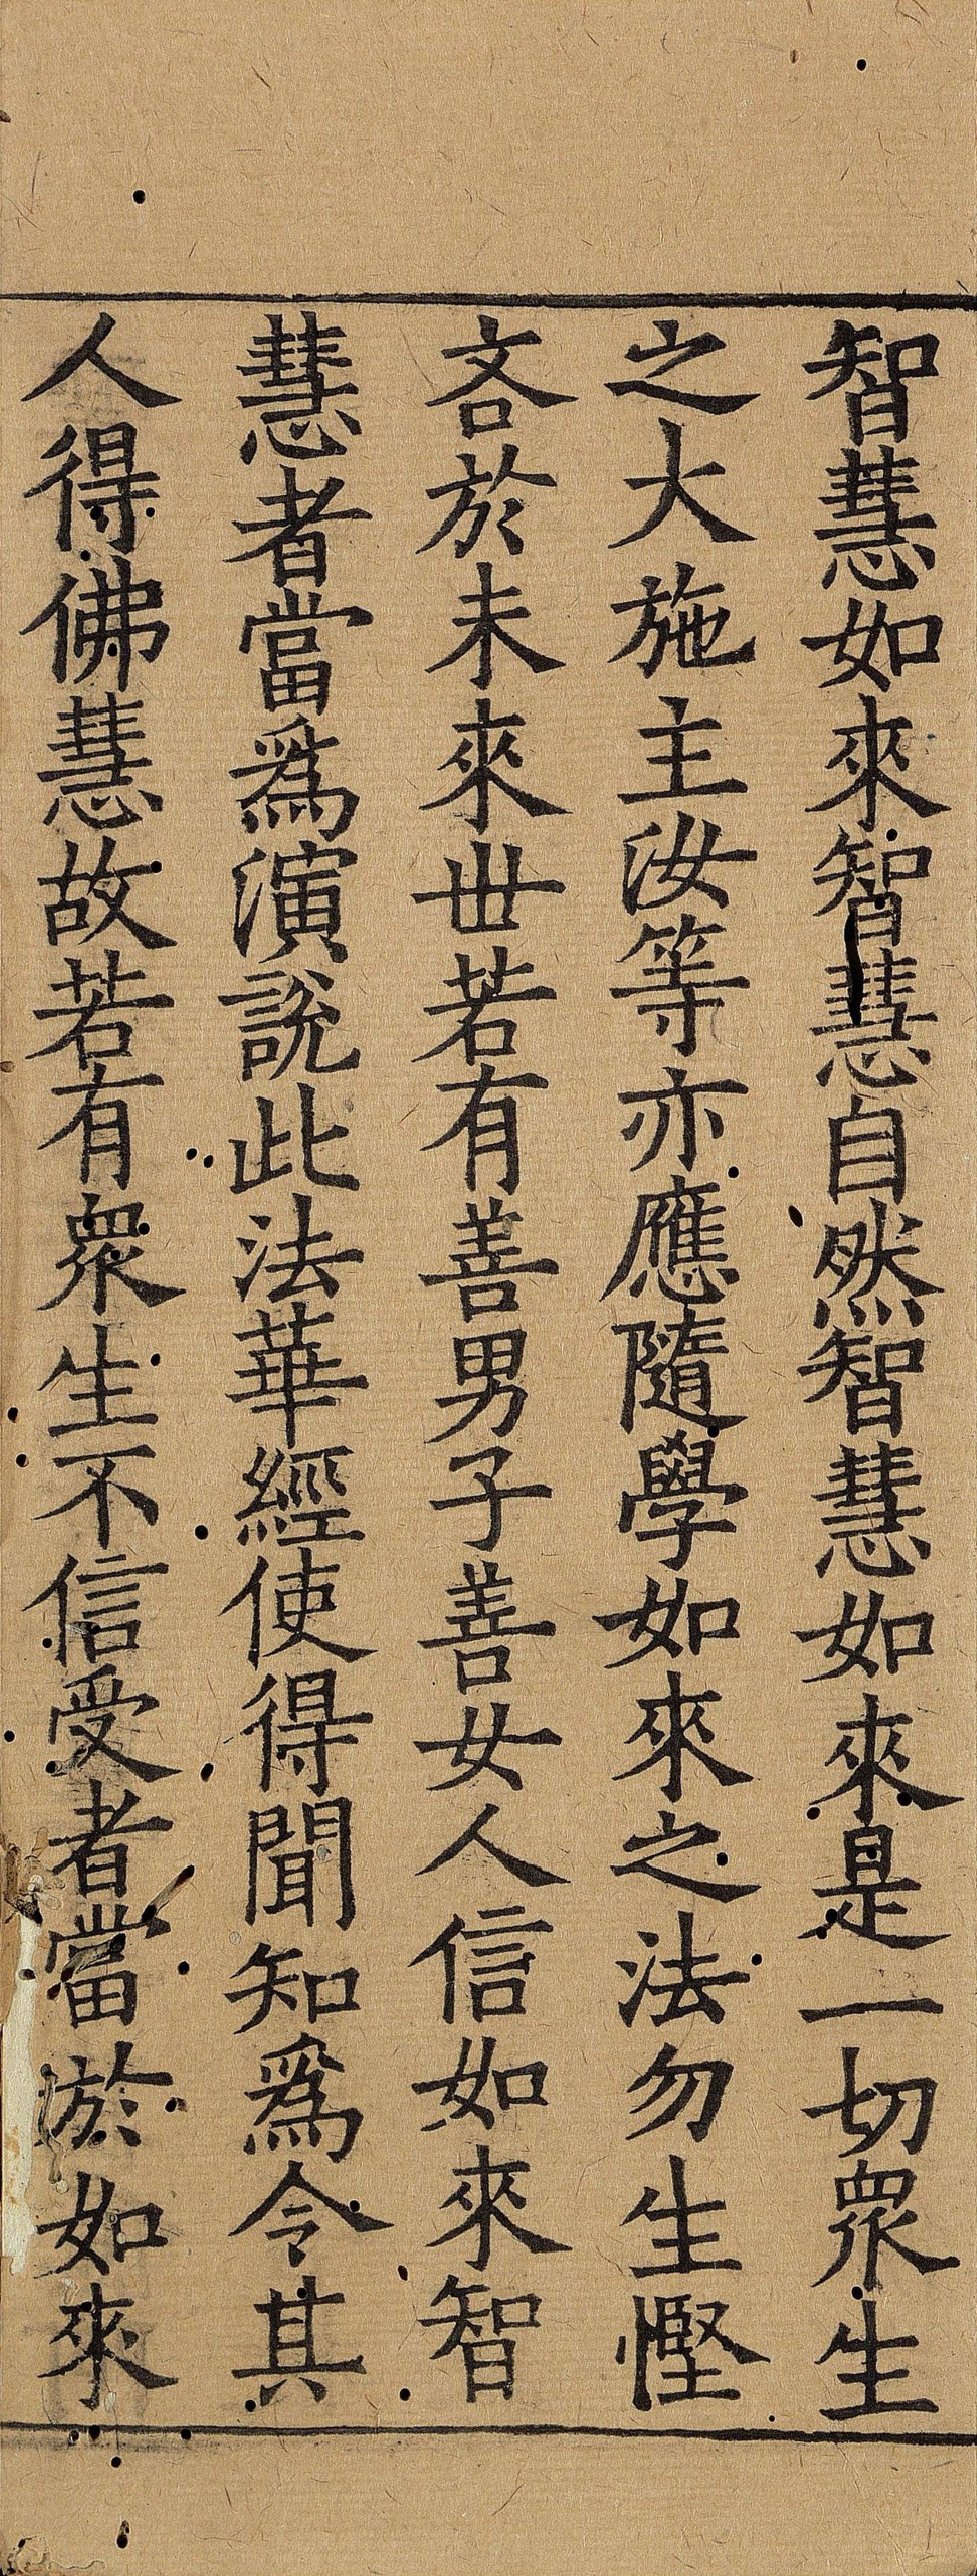 智慧如來智慧自然智慧如來是一切衆生
之大施主汝等亦應隨學如來之法勿生慳
吝於未來世若有善男子善女人信如來智
慧者當爲演說此法華經使得聞知爲令其
人得佛慧故若有衆生不信受者當於如來